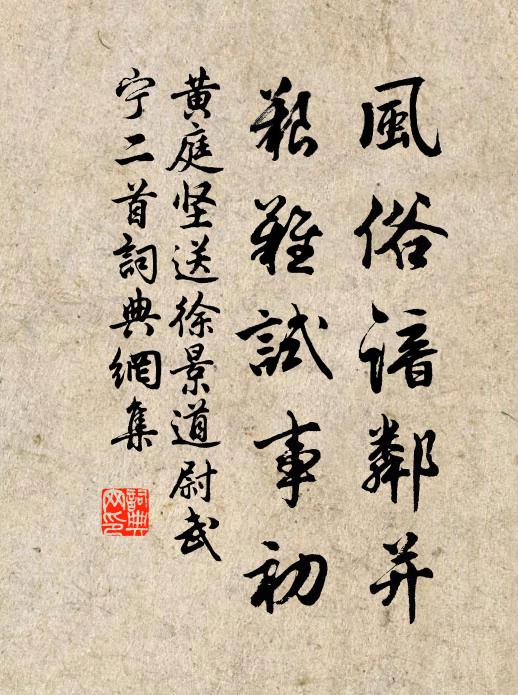 風俗諳鄰并
艱難試事初
黄庭坚送徐景道尉武
宁二首詞典網集
詞典
网印